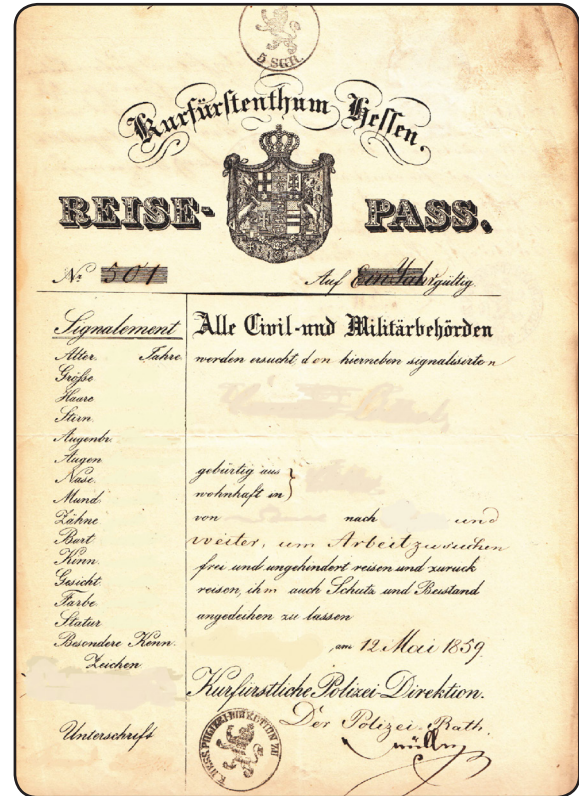 5 SGR.
Kurfürstenthum Hessen.
REISE- PASS.
No. 501
Auf Ein Jahr gültig
Signalement
Alter Jahre
Größe
Haare
Stirn
Augenbr.
Augen
Nase
Mund
Zähne
Bart
Kinn
Gesicht
Farbe
Statur
Besondere Kenn
Zeichen
Unterschrift
Alle Civil-und Militärbehörden
werden ersucht den hierneben signalisirten
gebürtig aus
wohnhaft in
von nach und
weiter, um Arbeit zu suchen
frei und ungehindert reisen und zurück
reisen, ihm auch Schutz und Beistand
angedeihen zu lassen
, am 12 Mai 1859.
Kurfürstliche Polizei-Direktion.
Der Polizei-Rath.
Müller
K. HESS. POLIZEI-DIREKTION ZU